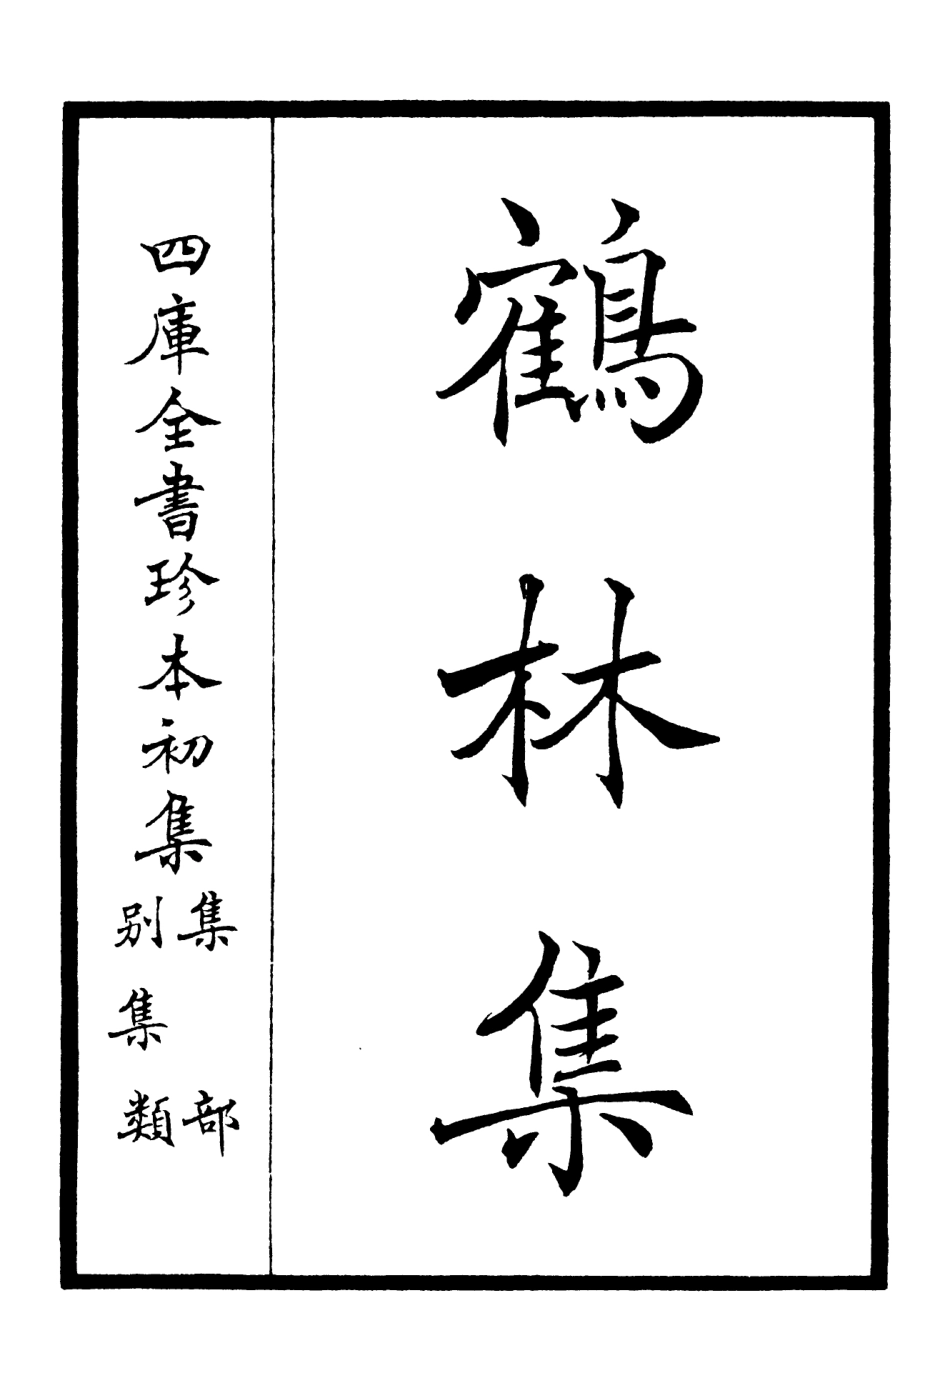 鶴林集
四庫全書珍本初集
集部
別集類